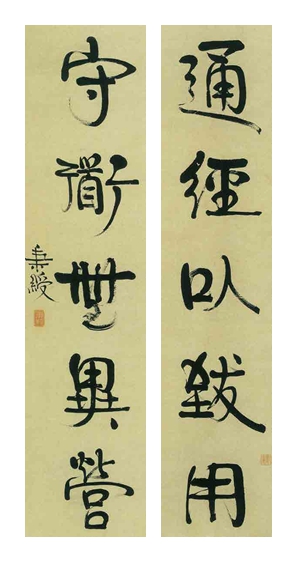 通經以致用
守衜無異營
秉綬